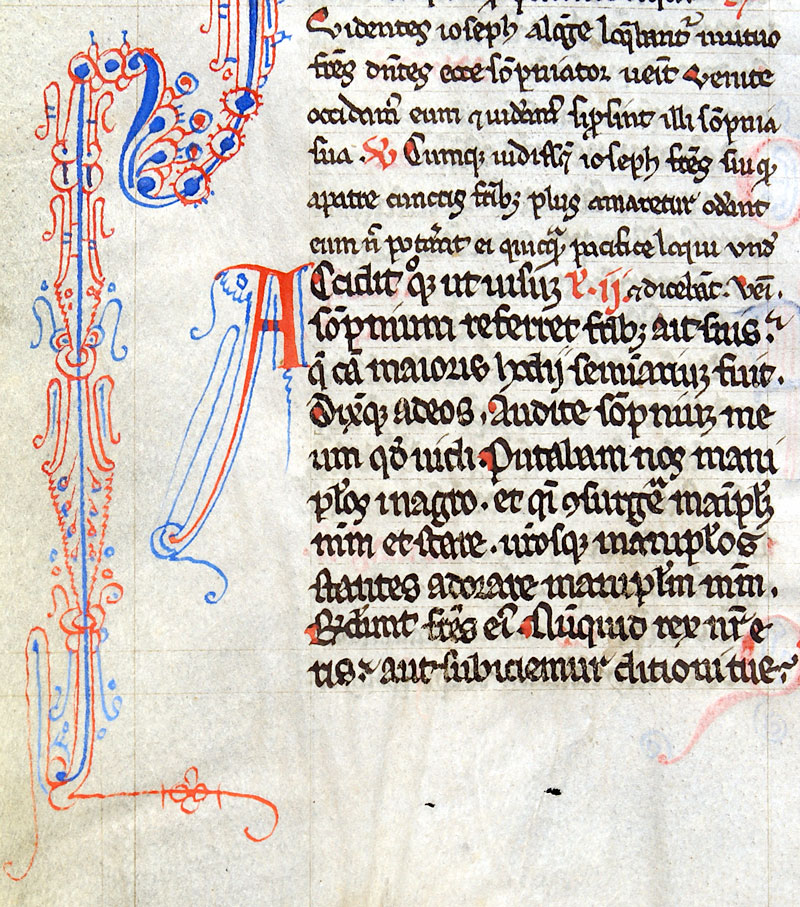 Videntes ioseph a lo̅ge loq̅bantr̅ mutuo
fr̅es dn̅tes ecce so̅pniator ueit̅ venite
occidam᷒ eum ⁊ uidem᷒ si p̱sint illi so̅pnia
sua . V Cumq; uidiss̅t ioseph fr̅es suiq̱
a patre cunctis fr̅ib; plus amaretur oder̅nt
eum n̅ poter̅at ei quicq̅ pacifice loqui vnd̅
Accidit qͦq; ut uisuꝫ R . ij . ⁊ dicebat̅ . Vei̅ .
so̅pnium referret fr̅ib; ait suis .
q̅ ca̅ maioris hodij seminariuꝫ fuit .
Dixq̅; ad eos . Audite so̅pniuꝫ me
um qd̅ uidi . Putabam nos mani
pl̅os in agro . et q̅i ꝯsurge̅ maip̅lꝫ
mm̅ et stare . ur̅osq; manipl̅os
stantes adorare manipl̅m mm̅ .
Rd̅erunt fr̅es ei᷒ . Nu̅quid rex nr̅ e
ris . aut subiciemur ditioni tue .